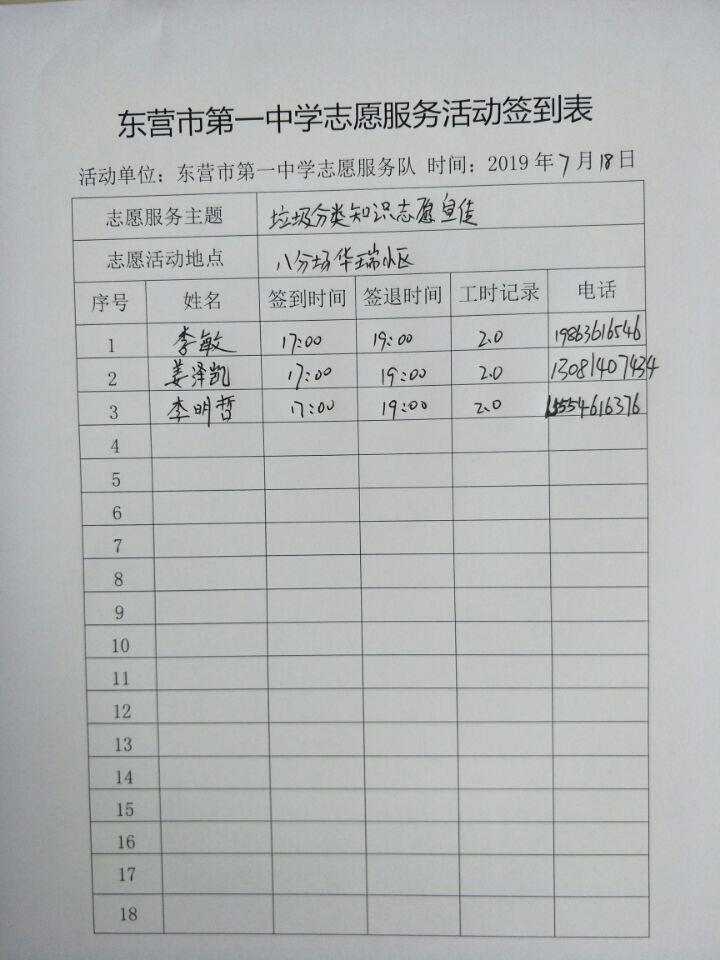 东营市第一中学志愿服务活动签到表
活动单位：东营市第一中学志愿服务队 时间：2019年7月18日
志愿服务主题 垃圾分类知识志愿宣传
志愿活动地点 八分场华瑞小区
序号 姓名 签到时间 签退时间 工时记录 电话
1 李敏 17:00 19:00 2.0 19863616546
2 姜泽凯 17:00 19:00 2.0 13081407434
3 李明哲 17:00 19:00 2.0 15554616376
4
5
6
7
8
9
10
11
12
13
14
15
16
17
18